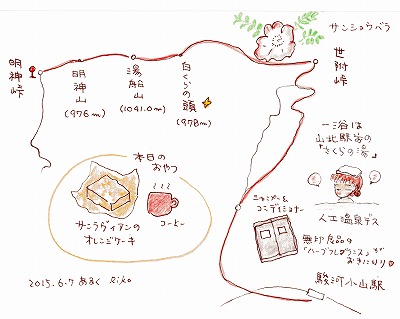 サンショウバラ
明神峠
明神山
(976m)
湯船山
(1041.0m)
白くらの頭
(978m)
世附峠
一浴は
山北駅前の
「さくらの湯」
人工温泉デス
本日の
おやつ
サニーサイドの
オレンジケーキ
コーヒー
シャンプー&
コンディショナー
無印良品の
「ハーブフレグランス」が
お気に入り
駿河小山駅
2015.6.7 あるく eiko